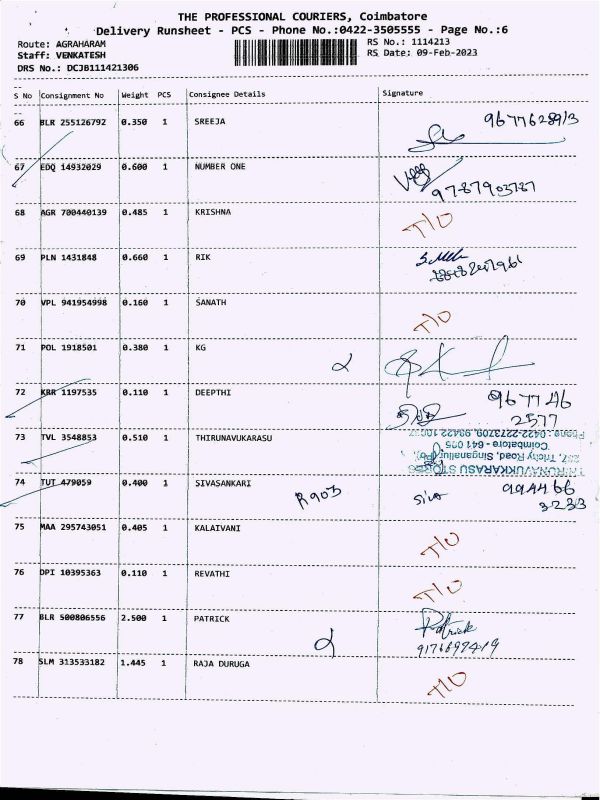 THE PROFESSIONAL COURIERS, Coimbatore
Delivery Runsheet - PCS - Phone No.:0422-3505555 - Page No.:6
Route: AGRAHARAM
RS No.: 1114213
Staff: VENKATESH
RS Date: 09-Feb-2023
DRS No.: DCJB111421306
S No Consignment No Weight PCS Consignee Details Signature
66 BLR 255126792 0.350 1 SREEJA
67 EDQ 14932029 0.600 1 NUMBER ONE
9787903787
68 AGR 700440139 0.485 1 KRISHNA T/O
69 PLN 1431848 0.660 1 RIK
70 VPL 941954998 0.160 1 SANATH T/O
71 POL 1918501 0.380 1 KG
72 KRR 1197535 0.110 1 DEEPTHI 967746
2577
73 TVL 3548853 0.510 1 THIRUNAVUKARASU
Phone : 0422-2273709, 99422
Coimbatore - 641 005
237, Trichy Road, Singanallur(Po),
THIRUNAVUKKARASU STORES
74 TUT 479059 0.400 1 SIVASANKARI R903 Siva 994466
3233
75 MAA 295743051 0.405 1 KALAIVANI T/O
76 DPI 10395363 0.110 1 REVATHI T/O
77 BLR 500806556 2.500 1 PATRICK Patrick
9176697419
78 SLM 313533182 1.445 1 RAJA DURUGA T/O